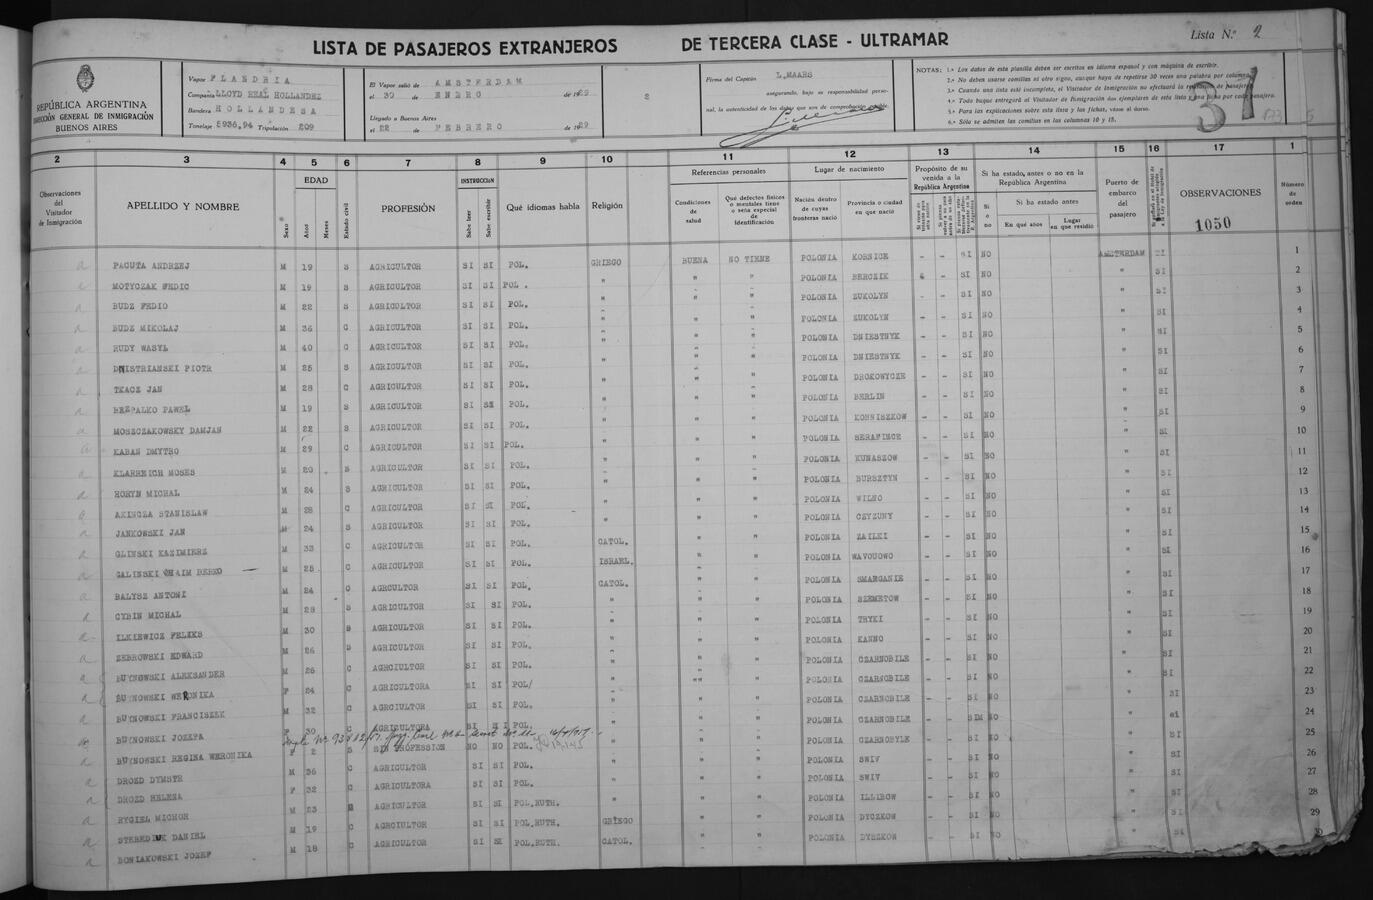 LISTA DE PASAJEROS EXTRANJEROS DE TERCERA CLASE - ULTRAMAR
Lista N.º 2
REPÚBLICA ARGENTINA
DIRECCIÓN GENERAL DE INMIGRACIÓN
BUENOS AIRES
Vapor FLANDRIA
Compañía LLOYD REAL HOLLANDEZ
Bandera HOLLANDESA
Tonelaje 5936,94 Tripulación 209
El Vapor salió de AMSTERDAM
el 30 de ENERO de 1929
Llegado a Buenos Aires
el 22 de FEBRERO de 1929
2
Firma del Capitán L.MAARS
asegurando, bajo su responsabilidad personal, la autenticidad de los datos que son de comprobación posible.
NOTAS: 1.ª Los datos de esta planilla deben ser escritos en idioma español y con máquina de escribir.
2.ª No deben usarse comillas ni otro signo, aunque haya de repetirse 30 veces una palabra por columna.
3.ª Cuando una lista esté incompleta, el Visitador de Inmigración no efectuará la recepción de pasajeros.
4.ª Todo buque entregará al Visitador de Inmigración dos ejemplares de esta lista y una ficha por cada pasajero.
5.ª Para las explicaciones sobre esta lista y las fichas, véase al dorso.
6.ª Sólo se admiten las comillas en las columnas 10 y 15.
37
2 3 4 5 6 7 8 9 10 11 12 13 14 15 16 17 1
Observaciones del Visitador de Inmigración
APELLIDO Y NOMBRE
Sexo
EDAD
Años
Meses
Estado civil
PROFESIÓN
INSTRUCCION
Sabe leer
Sabe escribir
Qué idiomas habla
Religión
Referencias personales
Condiciones de salud
Qué defectos físicos o mentales tiene o seña especial de identificación
Lugar de nacimiento
Nación dentro de cuyas fronteras nació
Provincia o ciudad en que nació
Propósito de su venida a la República Argentina
Si ha estado, antes o no en la República Argentina
Si o no
Si ha estado antes
En qué años
Lugar en que residió
Puerto de embarco del pasajero
OBSERVACIONES
1050
Número de orden
PACUTA ANDRZEJ M 19 S AGRICULTOR SI SI POL. GRIEGO BUENA NO TIENE POLONIA KORNICE - - SI NO AMSTERDAM SI 1
MOTYCZAK FEDIC M 19 S AGRICULTOR SI SI POL. " " " POLONIA BERCZIK - SI NO " SI 2
BUDZ FEDIO M 22 S AGRICULTOR SI SI POL. " " " POLONIA ZUKOLYN - - SI NO " SI 3
BUDZ MIKOLAJ M 36 C AGRICULTOR SI SI POL. " " " POLONIA ZUKOLYN - - SI NO " SI 4
RUDY WASYL M 40 C AGRICULTOR SI SI POL. " " " POLONIA DNIESTNYK - - SI NO " SI 5
DNISTRIANSKI PIOTR M 25 S AGRICULTOR SI SI POL. " " " POLONIA DNIESTNYK - - SI NO " SI 6
TKACZ JAN M 28 C AGRICULTOR SI SI POL. " " " POLONIA DROKOWYCZE - - SI NO " SI 7
BEZPALKO PAWEL M 19 S AGRICULTOR SI SI POL. " " " POLONIA BERLIN - - SI NO " SI 8
MOSZCZAKOWSKY DAMJAN M 22 S AGRICULTOR SI SI POL. " " " POLONIA KORNISZKOW - - SI NO " SI 9
KABAN DMYTRO M 29 C AGRICULTOR SI SI POL. " " " POLONIA SERAFINCE - - SI NO " SI 10
KLARREICH MOSES M 20 S AGRICULTOR SI SI POL. " " " POLONIA KUNASZOW - - SI NO " SI 11
HORYN MICHAL M 24 S AGRICULTOR SI SI POL. " " " POLONIA BURSZTYN - - SI NO " SI 12
AKINCZA STANISLAW M 28 C AGRICULTOR SI SI POL. " " " POLONIA WILNO - - SI NO " SI 13
JANKOWSKI JAN M 24 S AGRICULTOR SI SI POL. " " " POLONIA CZYZUNY - - SI NO " SI 14
GLINSKI KAZIMIERZ M 33 C AGRICULTOR SI SI POL. CATOL. " " POLONIA ZAILKI - - SI NO " SI 15
GALINSKI CHAIM BERKO M 25 C AGRICULTOR SI SI POL. ISRAEL. " " POLONIA WAVOUOWO - - SI NO " SI 16
BALYSZ ANTONI M 24 C AGRCULTOR SI SI POL. CATOL. " " POLONIA SMARGANIE - - SI NO " SI 17
CYBIN MICHAL M 28 S AGRICULTOR SI SI POL. " " " POLONIA SZEMETOW - - SI NO " SI 18
ILKIEWICZ FELIKS M 30 S AGRICULTOR SI SI POL. " " " POLONIA TRYKI - - SI NO " SI 19
ZEBROWSKI EDWARD M 26 S AGRICULTOR SI SI POL. " " " POLONIA KANNO - - SI NO " SI 20
BUYNOWSKI ALEKSANDER M 26 C AGRCIULTOR SI SI POL. " " " POLONIA CZARNOBILE - - SI NO " SI 21
BUYNOWSKI WERONIKA F 24 C AGRICULTORA SI SI POL/ " " " POLONIA CZARNOBILE - - SI NO " SI 22
BUYNOWSKI FRANCISZEK M 32 C AGRCIULTOR SI SI POL. " " " POLONIA CZARNOBILE - - SI NO " SI 23
BUYNOWSKI JOZEPA F 30 C AGRICULTORA SI SI POL. " " " POLONIA CZARNOBILE - - SI NO " SI 24
BUYNOWSKI REGINA WERONIKA F 2 S SIN PROFESSION NO NO POL. " " " POLONIA CZARNOBYLE - - SI NO " SI 25
DROZD DYMSTR M 36 C AGRICULTOR SI SI POL. " " " POLONIA SWIV - - SI NO " SI 26
DROZD HELENA F 32 C AGRICULTORA SI SI POL. " " " POLONIA SWIV - - SI NO " SI 27
RYGIEL MICHOR M 23 AGRICULTOR SI SI POL.RUTH. " " " POLONIA ILLIBOW - - SI NO " SI 28
STEBEDIUK DANIEL M 19 C AGRCIULTOR SI SI POL.RUTH. GRIEGO " " POLONIA DYCZKOW - - SI NO " SI 29
BONIAKOWSKI JOZEF M 18 C AGRICULTOR SI SI POL.RUTH. CATOL. " " POLONIA DYSZKOW - - SI NO " SI